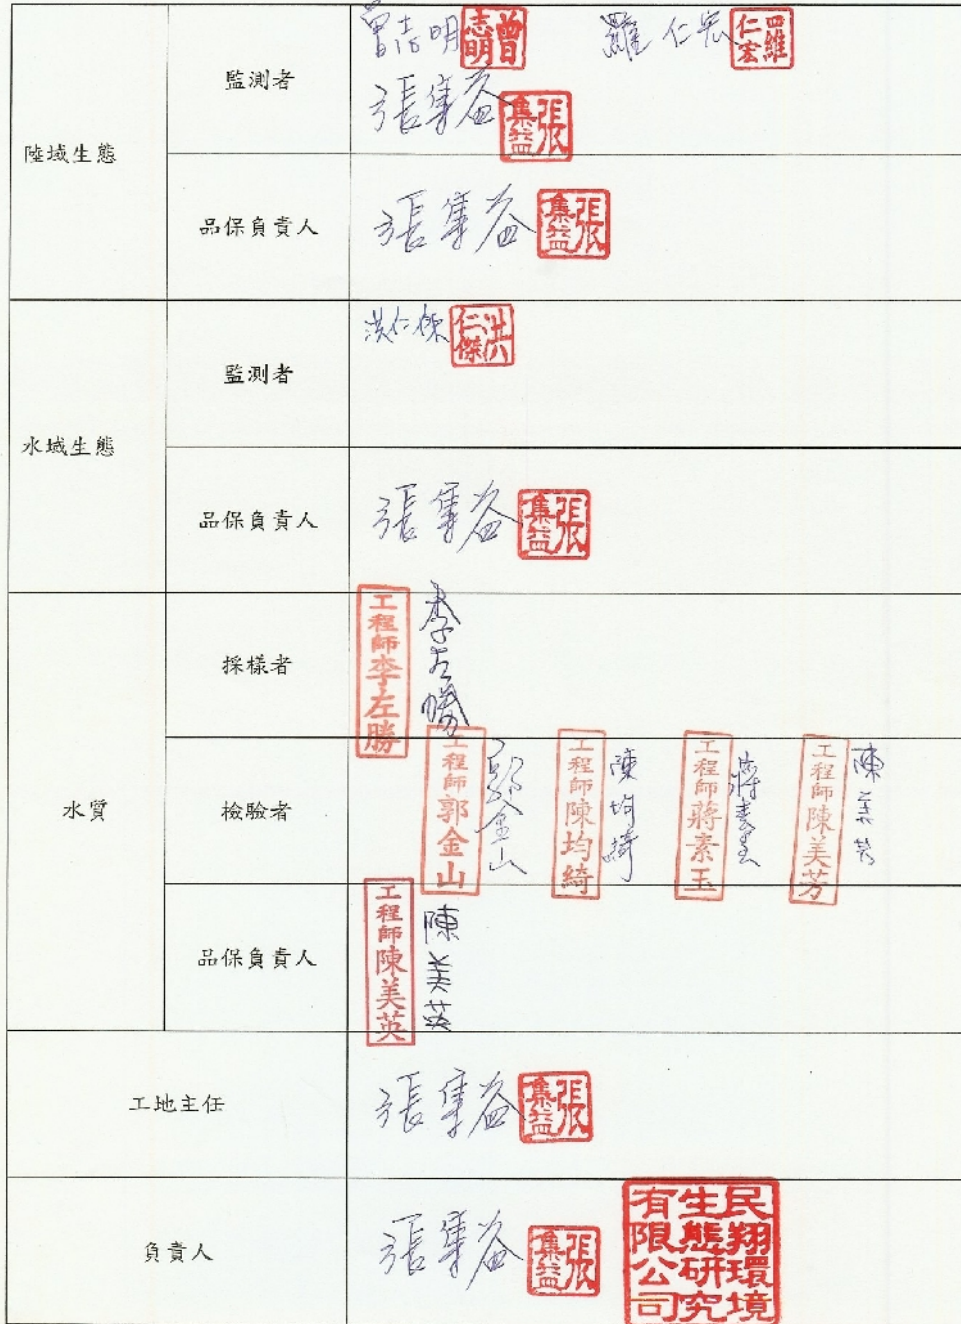 陸域生態
監測者
曾志明 曾志明 羅仁宏 羅仁宏
張集益 張集益
品保負責人
張集益 張集益
水域生態
監測者
洪仁傑 洪仁傑
品保負責人
張集益 張集益
水質
採樣者
工程師李左勝 李左勝
檢驗者
工程師郭金山 郭金山 工程師陳均綺 陳均綺 工程師蔣素玉 蔣素玉 工程師陳美芳 陳美芳
品保負責人
工程師陳美英 陳美英
工地主任
張集益 張集益
負責人
張集益 張集益 民翔環境生態研究有限公司